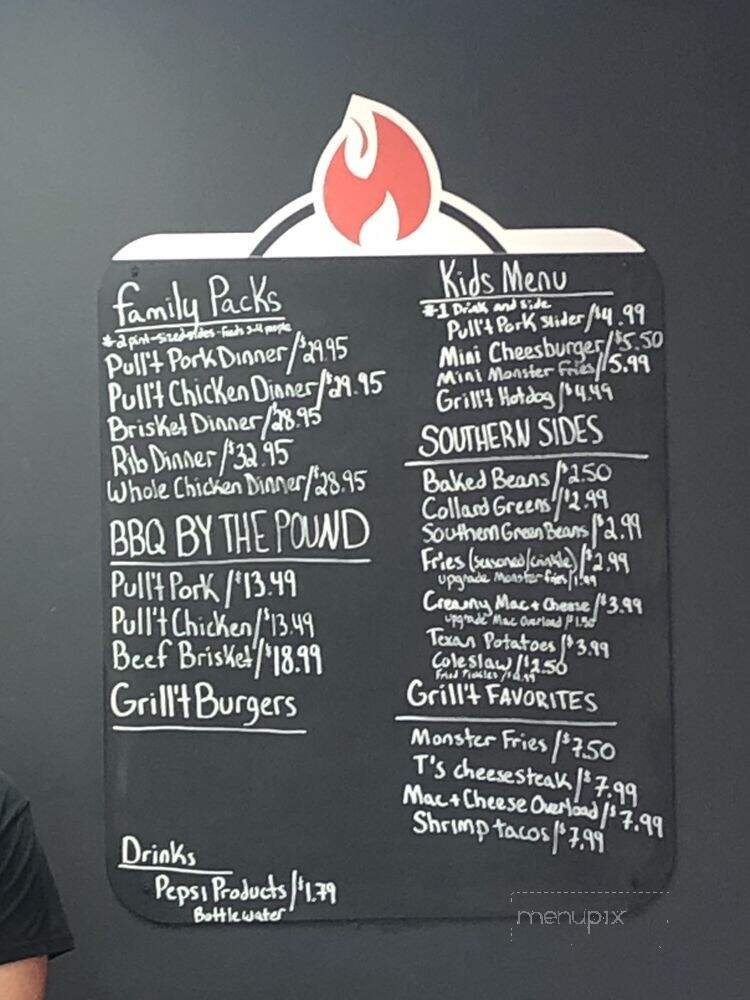 Family Packs
*2 pint-sized sides - feeds 3-4 people
Pull't Pork Dinner/$29.95
Pull't Chicken Dinner/$29.95
Brisket Dinner/$28.95
Rib Dinner/$32.95
Whole Chicken Dinner/$28.95
BBQ BY THE POUND
Pull't Pork/$13.49
Pull't Chicken/$13.49
Beef Brisket/$18.99
Grill't Burgers
Drinks
Pepsi Products/$1.79
Bottle water
Kids Menu
*1 Drink and side
Pull't Pork slider/$4.99
Mini Cheesburger/$5.50
Mini Monster Fries/$5.99
Grill't Hotdog/$4.49
SOUTHERN SIDES
Baked Beans/$2.50
Collard Greens/$2.99
Southern Green Beans/$2.99
Fries (seasoned/crinkle)/$2.99
upgrade Monster fries/
Creamy Mac + Cheese/$3.99
upgrade Mac Overload/$1.50
Texan Potatoes/$3.99
Coleslaw/$2.50
Fried Pickles/
Grill't FAVORITES
Monster Fries/$7.50
T's cheesesteak/$7.99
Mac + Cheese Overload/$7.99
Shrimp tacos/$7.99
menupix